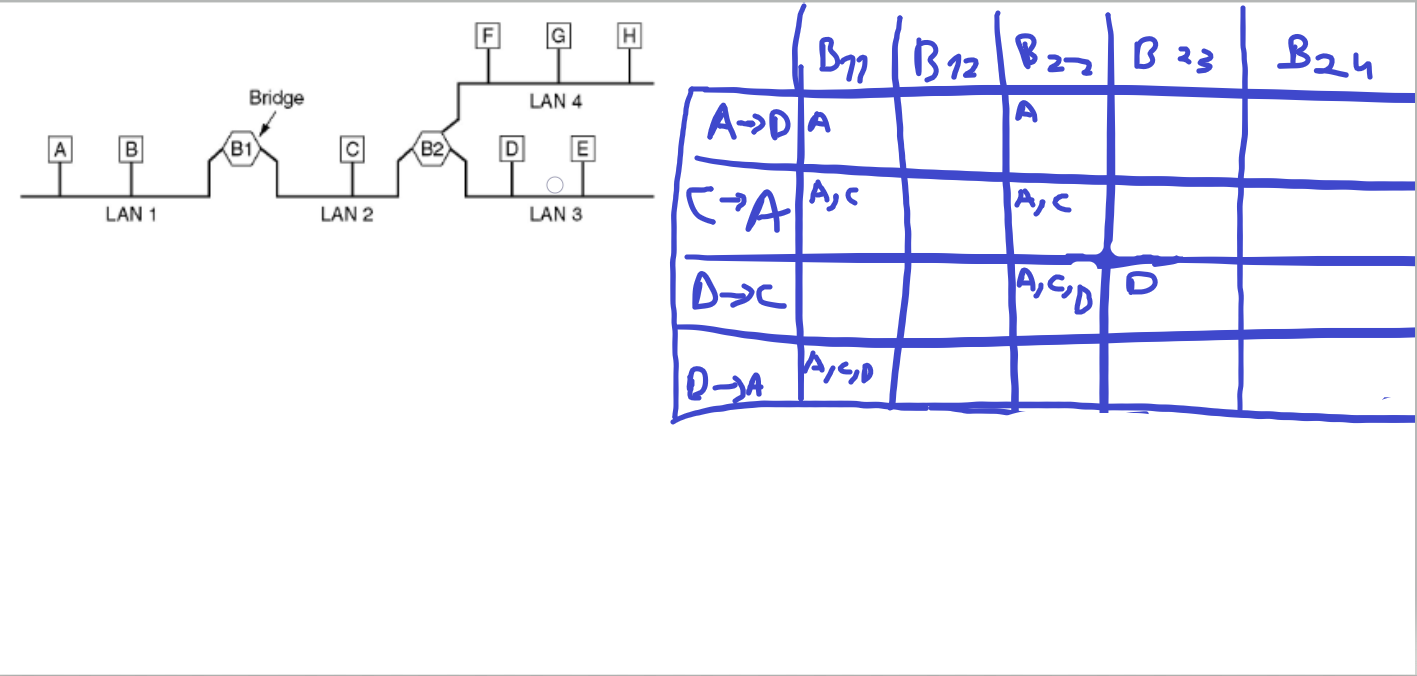 F G H
LAN 4
Bridge
A B B1 C B2 D E
LAN 1 LAN 2 LAN 3
B11 B12 B22 B 23 B24
A→D A A
C→A A,C A,C
D→C A,C,D D
D→A A,C,D